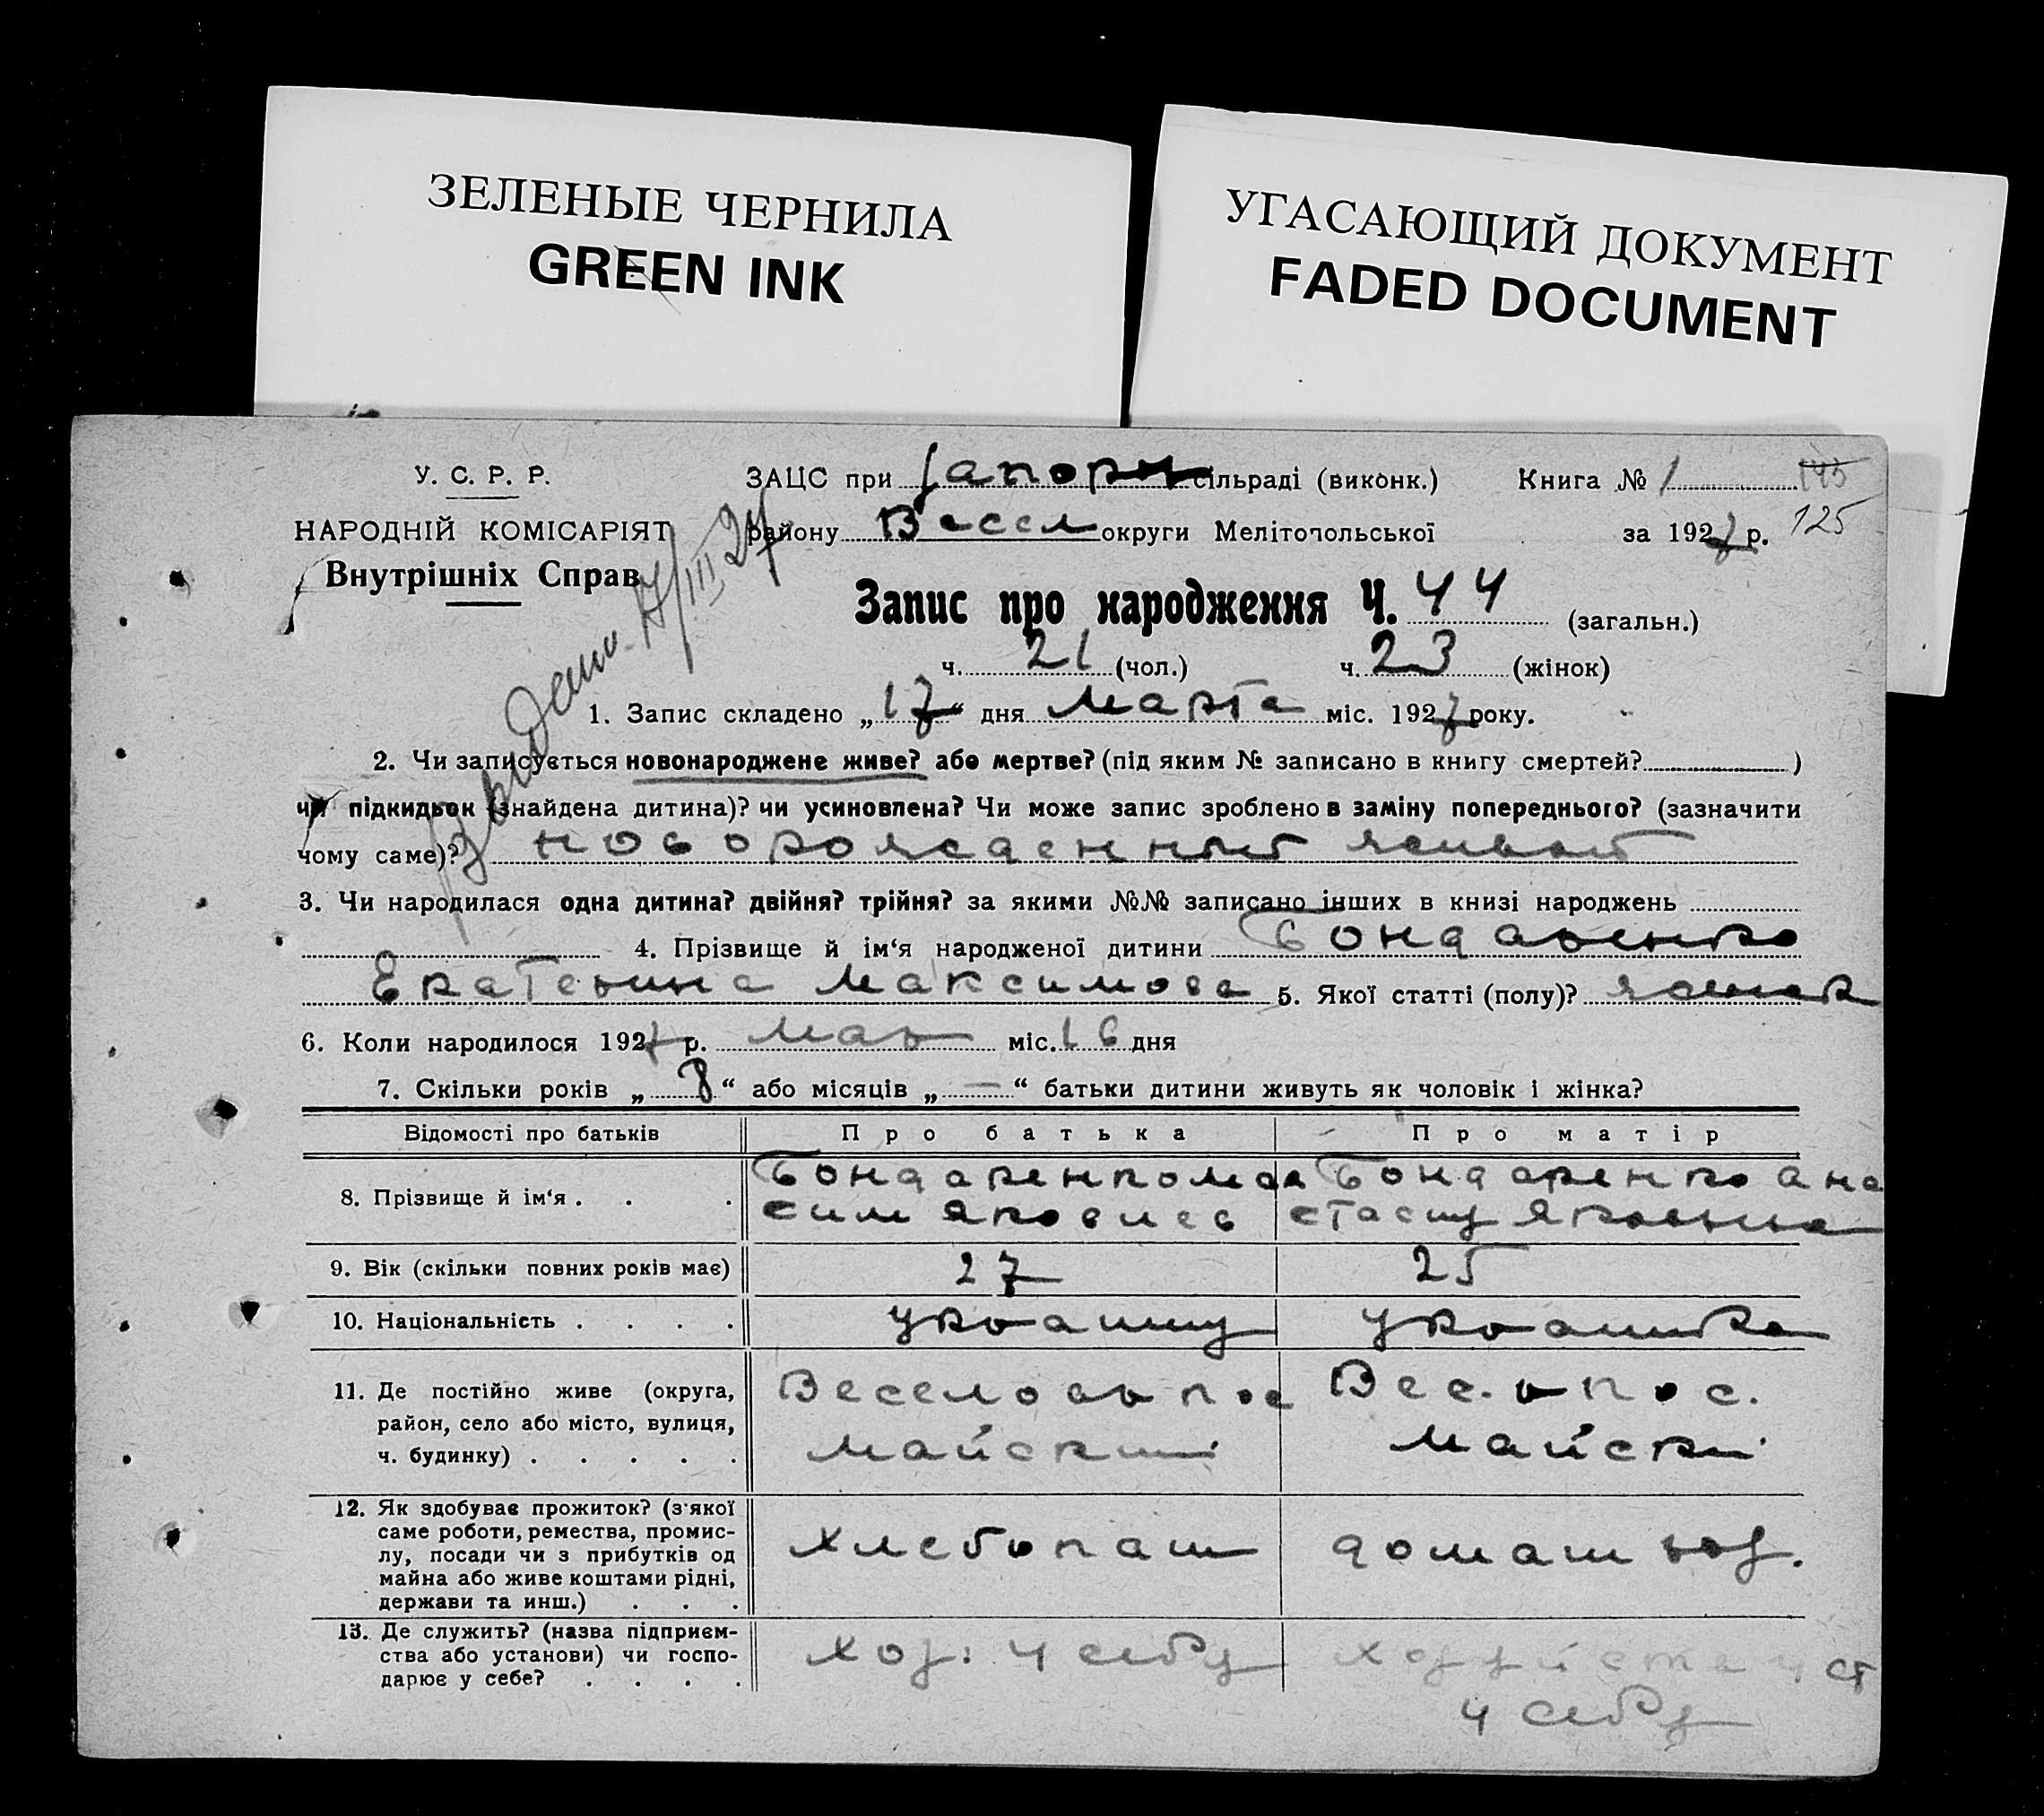 ЗЕЛЕНЫЕ ЧЕРНИЛА
GREEN INK
УГАСАЮЩИЙ ДОКУМЕНТ
FADED DOCUMENT
У. С. Р. Р.
НАРОДНІЙ КОМІСАРІЯТ
Внутрішніх Справ
ЗАЦС при Запори сільраді (виконк.) Книга № 1 145
району Весел округи Мелітопольської за 1927 р. 125
Запис про народження Ч. 44 (загальн.)
ч. 21 (чол.) ч. 23 (жінок)
17/III 27
1. Запис складено „17“ дня марта міс. 1927 року.
2. Чи записується новонароджене живе? або мертве? (під яким № записано в книгу смертей? )
чи підкидьок (знайдена дитина)? чи усиновлена? Чи може запис зроблено в заміну попереднього? (зазначити
чому саме)? новорожденный живой
3. Чи народилася одна дитина? двійня? трійня? за якими №№ записано інших в книзі народжень
4. Прізвище й ім‘я народженої дитини Бондаренко
Екатерина Максимова 5. Якої статті (полу)?
6. Коли народилося 1927 р. мар міс. 16 дня
7. Скільки років „ 8 “ або місяців „ — “ батьки дитини живуть як чоловік і жінка?
Відомості про батьків Про батька Про матір
8. Прізвище й ім‘я . . . Бондаренко Мак Бондаренко Ана
сим Яковлев стасия Яковлевна
9. Вік (скільки повних років має) 27 25
10. Національність . . . . украинец украинка
11. Де постійно живе (округа, Веселов р п ос Вес. р п ос.
район, село або місто, вулиця,
ч. будинку) . . . . . Майский Майски
12. Як здобуває прожиток? (з якої
саме роботи, ремества, промис-
лу, посади чи з прибутків од хлебопаш домаш хоз.
майна або живе коштами рідні,
держави та инш.) . . .
13. Де служить? (назва підприєм-
ства або установи) чи госпо- хоз. у себя
дарює у себе? . . . . у себя